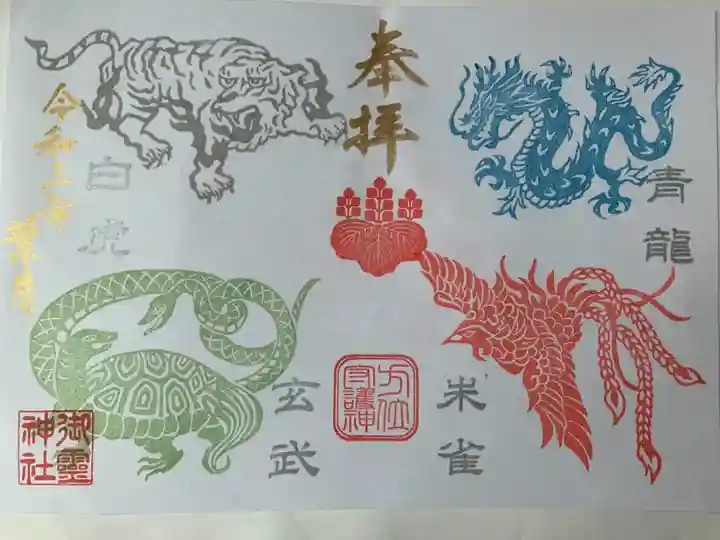 奉拝
青龍
白虎
令和三年
朱雀
玄武
方位
守護神
御霊
神社